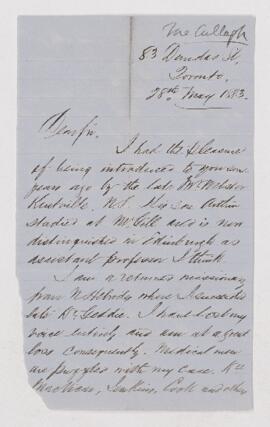 McCullagh
83 Dundas St,
Toronto,
28th May 1883.
Dear Sir,
I had the pleasure
of being introduced to you some
years ago by the late Mr Webster
Kentville, N.S. His son Arthur
studied at McGill and is now
distinguished in Edinburgh as
assistant professor I think.
I am a returned missionary
from N Hebrides where I succeeded
late Dr Geddie. I have lost my
voice entirely and am at a great
loss consequently. Medical men
are puzzled with my case. Drs
Jenkins, Cook and other